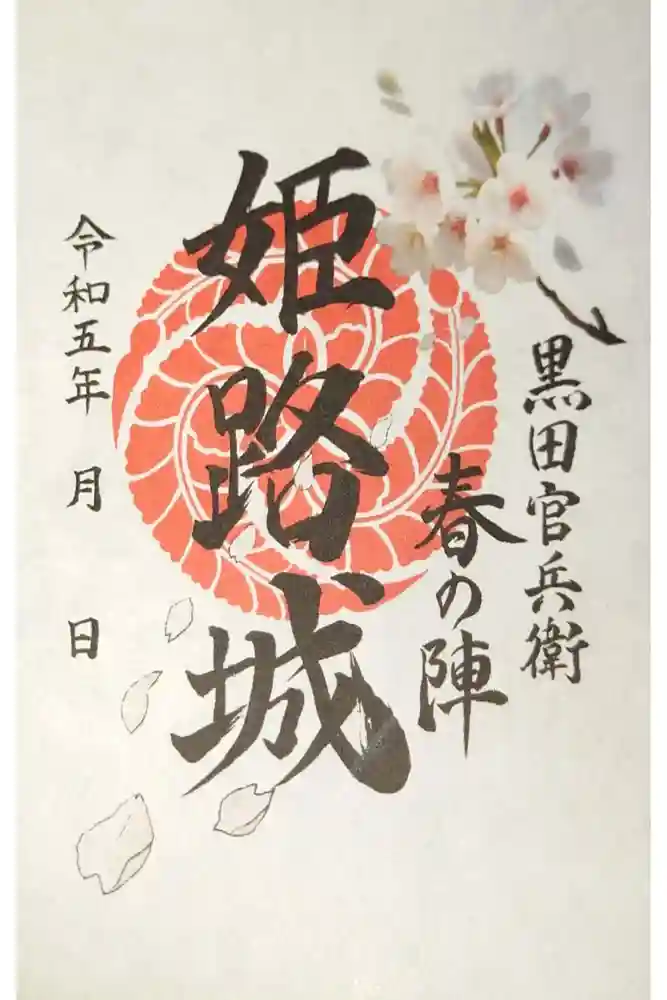 黒田官兵衛
春の陣
姫路城
令和五年 月 日